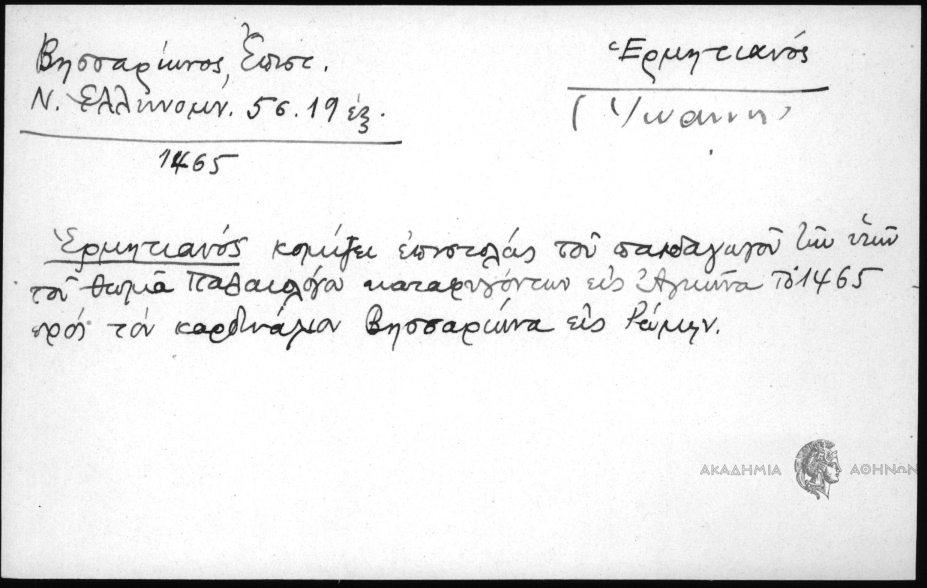 Βησσαρίωνος, Ἐπιστ.
Ν. Ἑλληνομν. 5 σ. 19 ἑξ.
1465
Ἑρμητιανός
(Ἰωάννης
Ἑρμητιανός κομίζει ἐπιστολάς τοῦ παιδαγωγοῦ τῶν υἱῶν
τοῦ Θωμᾶ Παλαιολόγου καταφυγόντων εἰς Ἀγκῶνα τῷ 1465
πρός τόν καρδινάλιον Βησσαρίωνα εἰς Ῥώμην.
ΑΚΑΔΗΜΙΑ ΑΘΗΝΩΝ